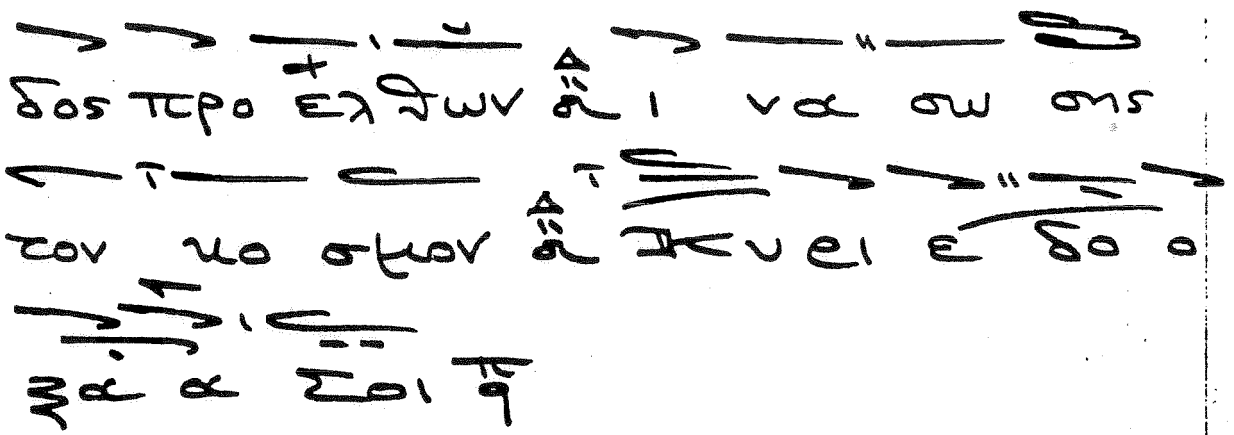 δος προ ελθων ι να σω σης
τον κο σμον Κυ ρι ε δο ο
ξα α Σοι